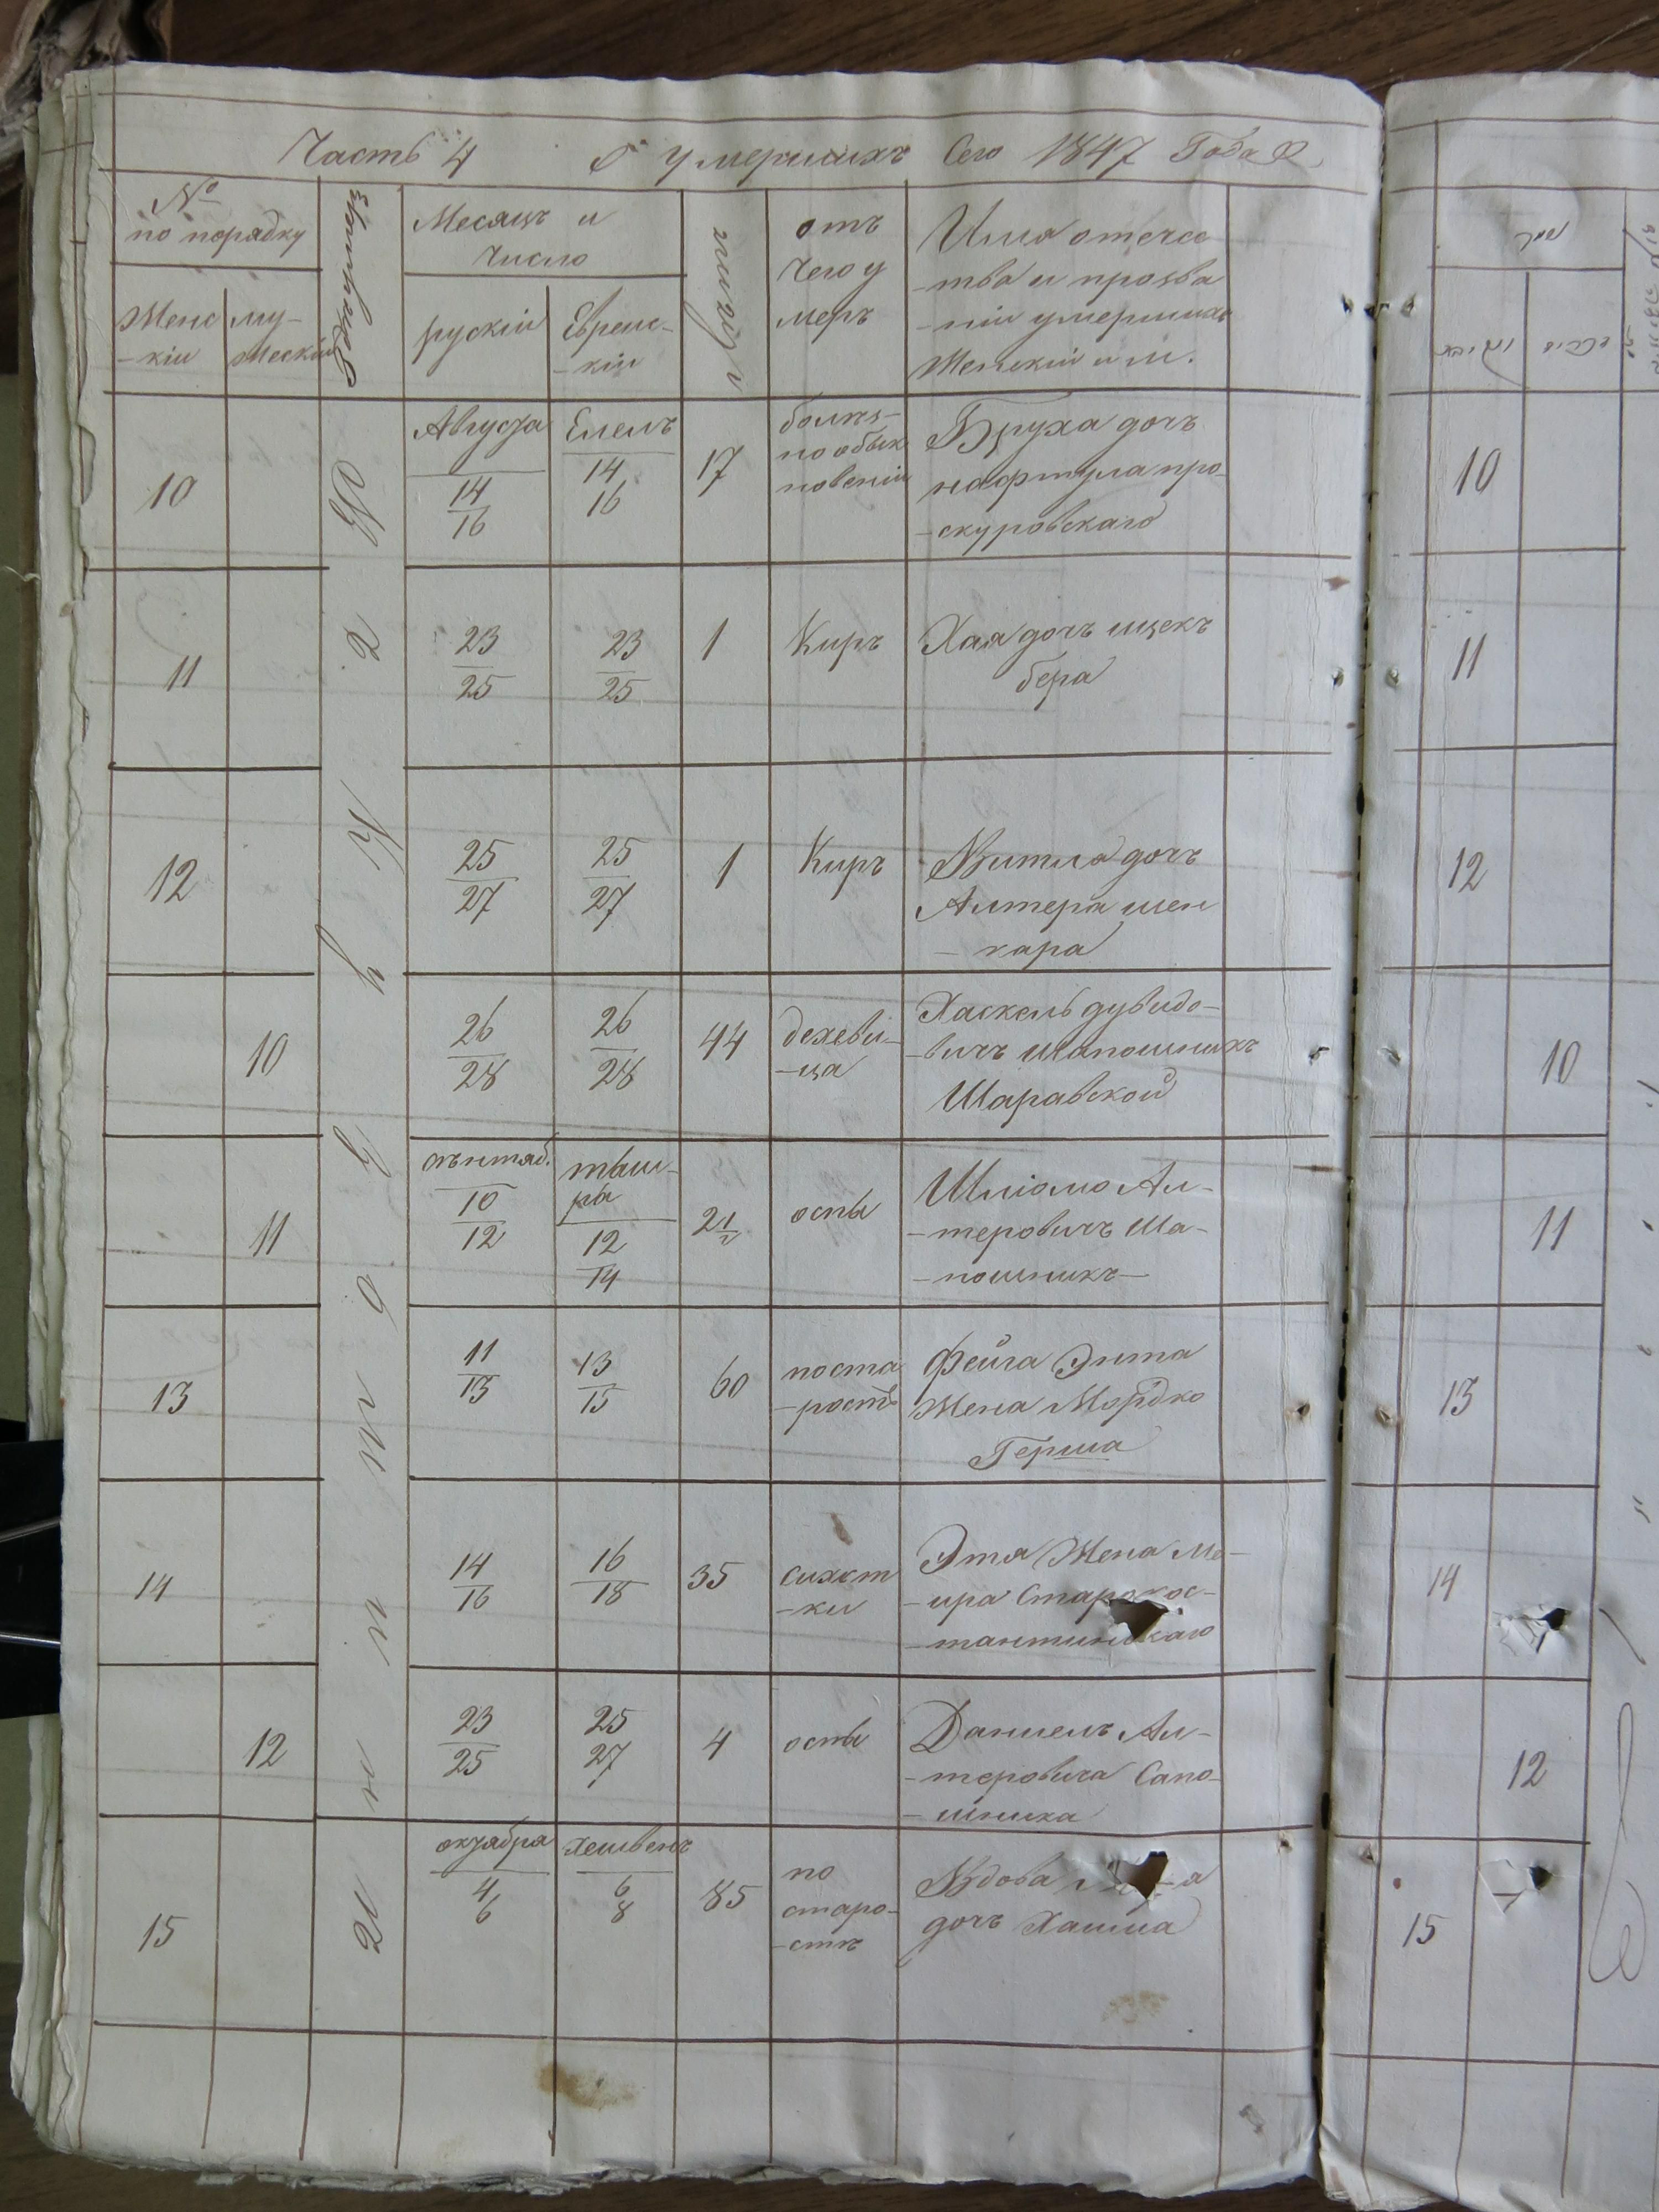 Часть 4 О умершихъ Сего 1847 Года
№
по порядку
Женс
-кіи
му-
жескіи
Месяцъ и
Число
рускіи
Евреис-
-кіи
отъ
чего у
меръ
Имя отечес
-тва и прозва
-ніи умершихъ
Женскіи и м.
10
Августа
14
16
Елелъ
14
16
17
болѣз-
по обык
новенію
Бруха дочь
нафтула про-
-скуровскаго
11
23
25
23
25
1
Киръ
Хая дочь
бера
12
25
27
25
27
1
Киръ
Витла дочъ
Алтера шен
-кара
10
26
28
26
28
44
дехеви-
-ца
Хаскель дувидо-
-вичъ шапошникъ
Шаравской
11
сѣнтяб.
10
12
тыш-
ры
12
14
2 1/2
оспы
Шліомо Ал-
-теровичъ Ша-
-пошникъ-
13
11
13
13
15
60
поста
-рость
Фейга Энта
Жена Мордко
Герша
14
14
16
16
18
35
сухот
-ки
Этя Жена Ме-
-ира Старокос-
-тантинскаго
12
23
25
25
27
4
оспы
Даниелъ Ал-
-теровича Сапо-
-шника
15
октября
4
6
Хешвенъ
6
8
85
по
старо-
-стъ
Вдова
дочъ Хаима
10
11
12
10
11
13
14
12
15